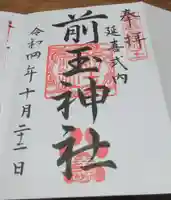 奉拝
延喜式内
前玉神社
令和四年十月二十二日